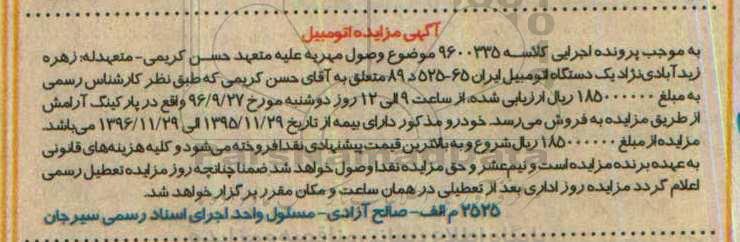 آگهی مزایده اتومبیل
به موجب پرونده اجرایی کلاسه ۹۶۰۰۳۳۵ موضوع وصول مهریه علیه متعهد حسن کریمی- متعهدله: زهره
زیدآبادی‌نژاد یک دستگاه اتومبیل ایران ۶۵-۵۲۵ د ۸۹ متعلق به آقای حسن کریمی که طبق نظر کارشناس رسمی
به مبلغ ۱۸۵۰۰۰۰۰۰ ریال ارزیابی شده، از ساعت ۹ الی ۱۲ روز دوشنبه مورخ ۹۶/۹/۲۷ واقع در پارکینگ آرامش
از طریق مزایده به فروش می‌رسد. خودرو مذکور دارای بیمه از تاریخ ۱۳۹۵/۱۱/۲۹ الی ۱۳۹۶/۱۱/۲۹ می‌باشد.
مزایده از مبلغ ۱۸۵۰۰۰۰۰۰ ریال شروع و به بالاترین قیمت پیشنهادی نقدا فروخته می‌شود و کلیه هزینه‌های قانونی
به عهده برنده مزایده است و نیم‌عشر و حق مزایده نقدا وصول خواهد شد ضمنا چنانچه روز مزایده تعطیل رسمی
اعلام گردد مزایده روز اداری بعد از تعطیلی در همان ساعت و مکان مقرر برگزار خواهد شد.
۲۵۲۵ م الف- صالح آزادی- مسئول واحد اجرای اسناد رسمی سیرجان